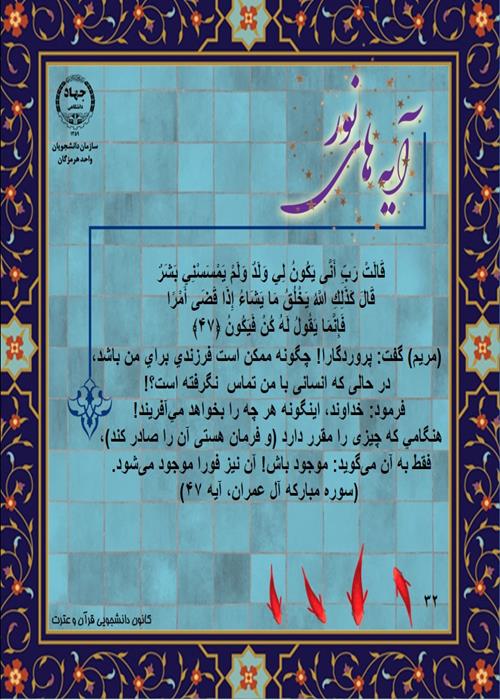 جهاد
دانشگاهی
۱۳۵۹
سازمان دانشجویان
واحد هرمزگان
آیه های نور
قَالَتْ رَبِّ أَنَّى يَكُونُ لِي وَلَدٌ وَلَمْ يَمْسَسْنِي بَشَرٌ
قَالَ كَذَلِكِ اللهُ يَخْلُقُ مَا يَشَاءُ إِذَا قَضَى أَمْرًا
فَإِنَّمَا يَقُولُ لَهُ كُنْ فَيَكُونُ ﴿۴۷﴾
(مریم) گفت: پروردگارا! چگونه ممکن است فرزندي براي من باشد،
در حالی که انسانی با من تماس نگرفته است؟!
فرمود: خداوند، اینگونه هر چه را بخواهد می‌آفریند!
هنگامي که چیزی را مقرر دارد (و فرمان هستی آن را صادر کند)،
فقط به آن می‌گوید: موجود باش! آن نیز فورا موجود می‌شود.
(سوره مبارکه آل عمران، آیه ۴۷)
۳۲
کانون دانشجویی قرآن و عترت